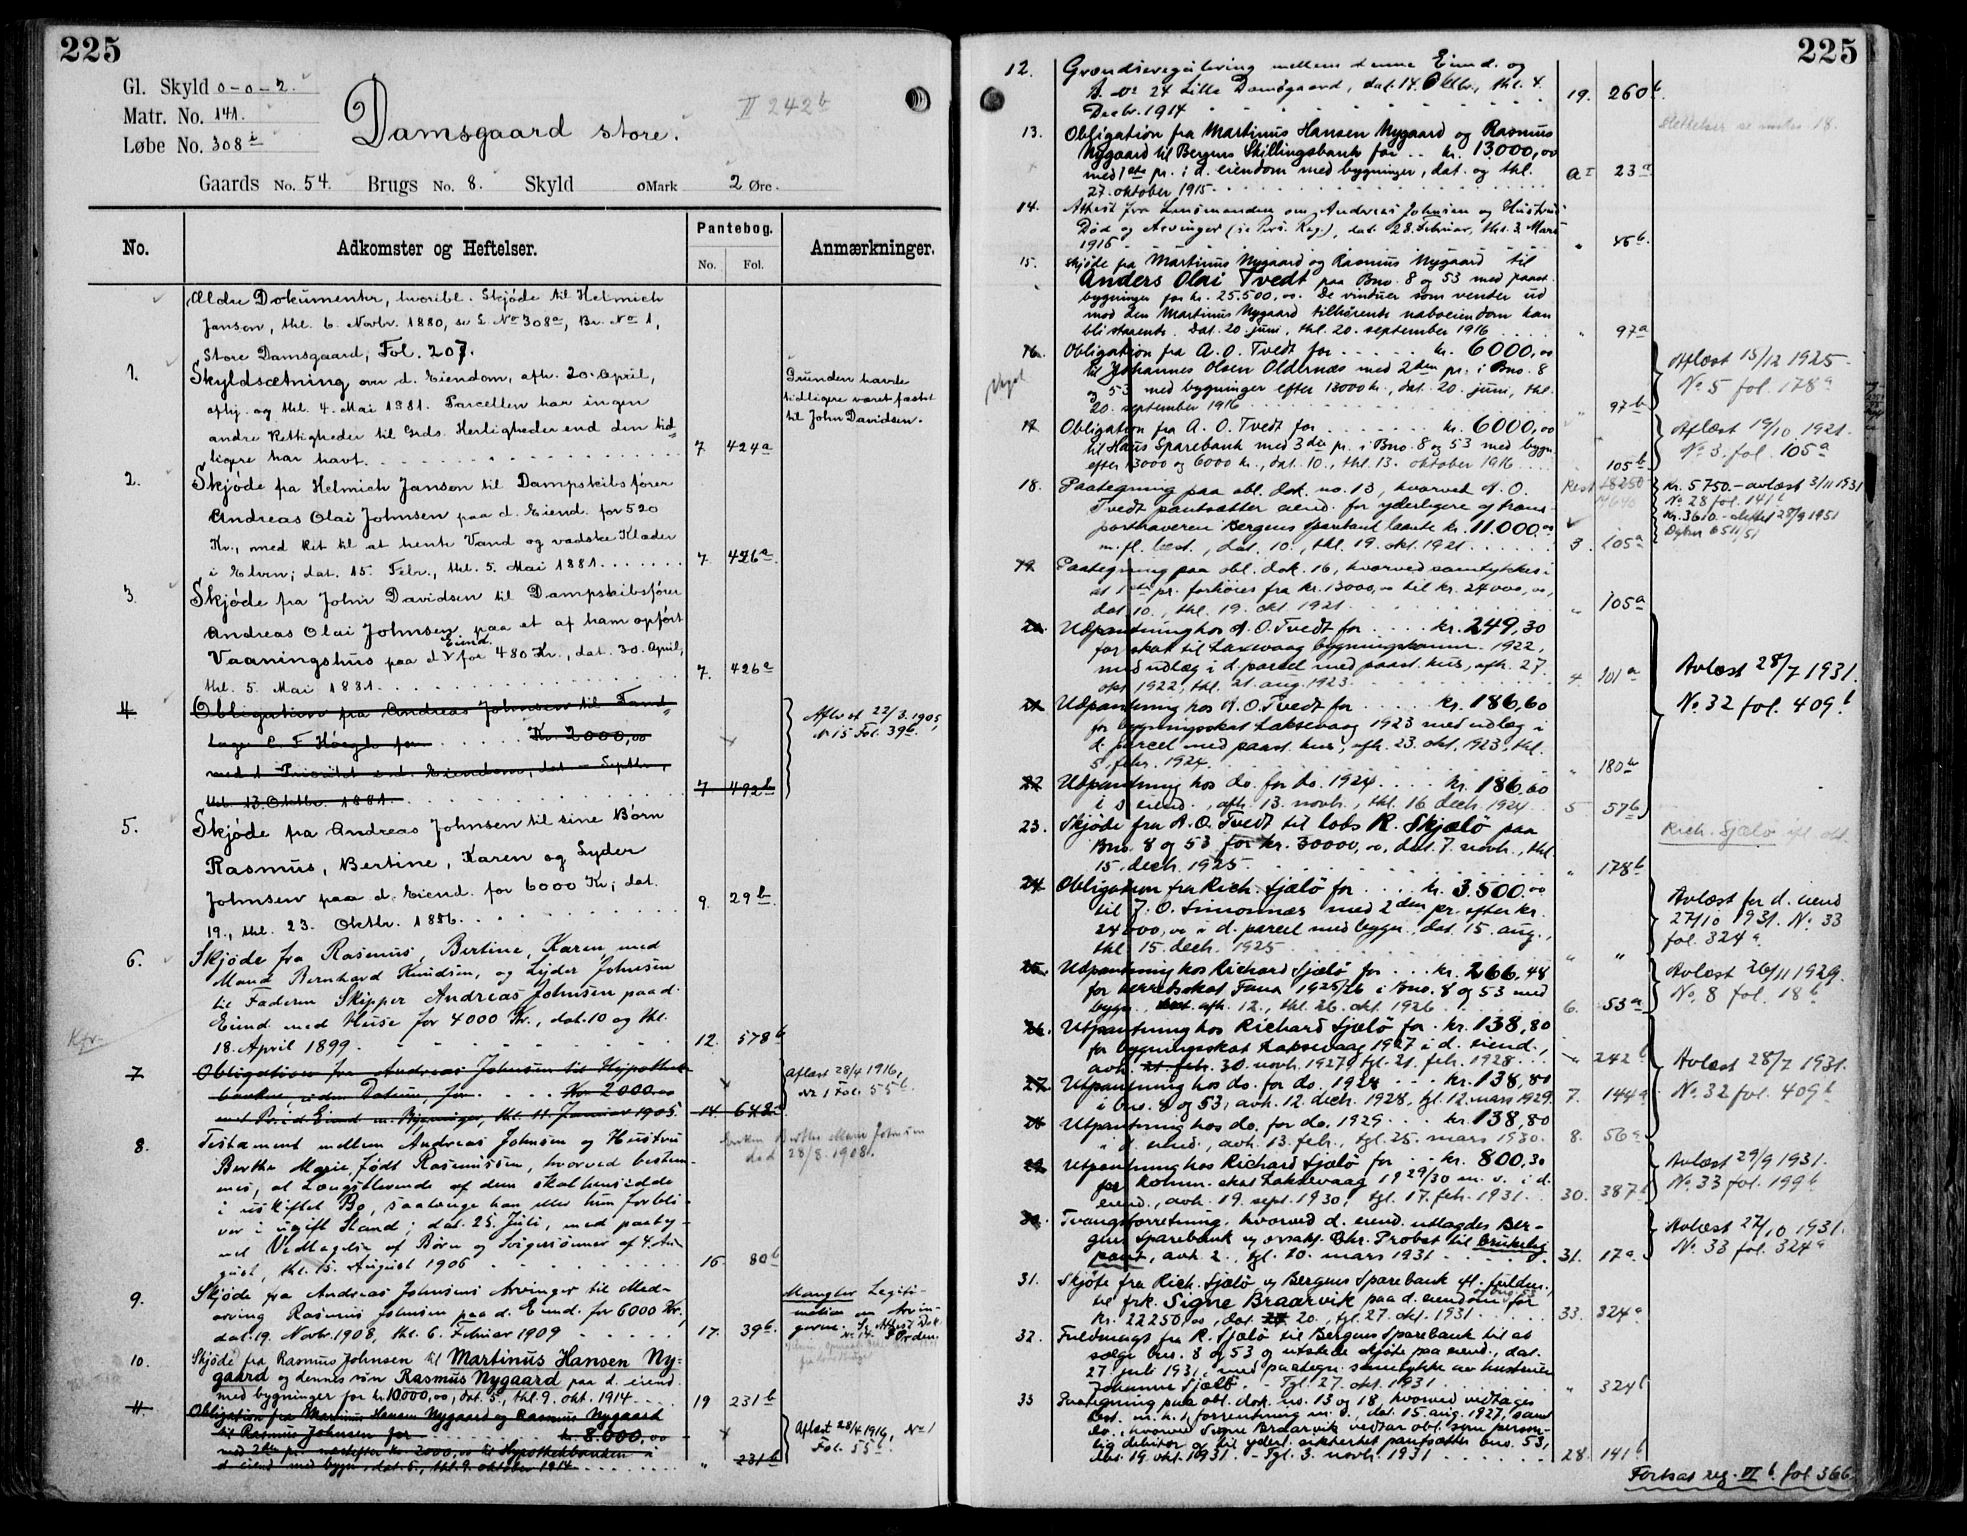 225
Gl. Skyld 0-0-2.
Matr. No. 141.
Løbe No. 308 i
Damsgaard store.
II 242 b
Gaards No. 54. Brugs No. 8. Skyld 0 Mark 2 Øre.
No. Adkomster og Heftelser. Pantebog. No. Fol. Anmærkninger.
Ældre Dokumenter, hvoribl. Skjøde til Helmich
Janson, thl. 6. Novbr. 1880, se L. No 308a, Br. No 1,
Store Damsgaard, Fol. 207.
1. Skyldsætning over d. Eiendom, afh. 20. April,
afhj. og thl. 4. Mai 1881. Parcellen har ingen
andre Rettigheder til Grds. Herligheder end den tid-
ligere har havt. 7 424a
Grunden havde
tidligere været fæstet
til John Davidsen.
2. Skjøde fra Helmich Janson til Dampskibsfører
Andreas Olai Johnsen paa d. Eiend. for 520
Kr., med Ret til at hente Vand og vadske Klæder
i Elven; dat. 15. Febr., thl. 5. Mai 1881. 7. 426a
3. Skjøde fra John Davidsen til Dampskibsfører
Andreas Olai Johnsen paa et af ham opført
Vaaningshus paa d. Eiend. for 480 Kr., dat. 30. April,
thl. 5. Mai 1881. 7. 426a
4. Obligation fra Andreas Johnsen til Hand-
lager C. F. Høegh for Kr. 2000,00
med 1 Prioritet i d. Eiendom, dat. - Septbr.,
thl. 13. Oktbr. 1881. 7 492b
Aflæst 22/3.1905,
No 15 Fol. 39b.
5. Skjøde fra Andreas Johnsen til sine Børn
Rasmus, Bertine, Karen og Lyder
Johnsen paa d. Eiend. for 6000 Kr; dat.
19., thl. 23. Oktbr. 1886. 9. 29b
6. Skjøde fra Rasmus, Bertine, Karen, med
Mand Bernhard Knudsen, og Lyder Johnsen
til Faderen Skipper Andreas Johnsen paa d.
Eiend. med Huse for 4000 Kr., dat. 10 og thl.
18. April 1899. 12. 578b
7 Obligation fra Andreas Johnsen til Hypothek-
banken, uden Datum, for Kr. 2000.00
med Pr. i d. Eiend m. Bygninger, thl. 11 Januar 1905. 14 642
Aflæst 28/4 1916,
No 1 Fol. 55b.
8. Testament mellem Andreas Johnsen og Hustru
Berthe Marie født Rasmussen, hvorved bestem-
mes, at Længstlevende af dem skal hensidde
i uskiftet Bo, saalænge han eller hun forbli-
ver i ugift Stand; dat. 25. Juli, med paateg-
net Vedtagelse af Børn og Svigersønner af 4. Au-
gust, thl. 15. August 1906 16 80b
Enken Berthe Marie Johnsen
død 28/8. 1908.
9. Skjøde fra Andreas Johnsens Arvinger til Med-
arving Rasmus Johnsen paa d. Eiend. for 6000 Kr,
dat. 19. Novbr. 1908, thl. 6. Februar 1909 17. 39b.
Mangler Legiti-
mation om Arvin-
gerne. Se Attest Dok.
No 14. I Orden.
10. Skjøde fra Rasmus Johnsen til Martinus Hansen Ny-
gaard og dennes søn Rasmus Nygaard paa d. eiend.
med bygninger for kr. 10000,00, dat. 5., thl. 9. okt. 1914 19 231b
11. Obligation fra Martinus Hansen Nygaard og Rasmus Nygaard
til Rasmus Johnsen for kr. 8.000,00
med 2den pr. næstefter kr. 2000,00 til Hypothekbanken i
d. eiend. med bygn., dat. 5., thl. 9. oktober 1914 " 231b
Aflæst 28/4 1916, No 1
Fol. 55b.
225
12. Grændseregulering mellem denne Eiend. og
B. No 24 Lille Damsgaard, dat. 14. Oktbr., thl. 4.
Decbr. 1914 19. 260b.
13. Obligation fra Martinus Hansen Nygaard og Rasmus
Nygaard til Bergens Skillingsbank for .. kr. 13000,00
med 1ste pr. i d. eiendom med bygninger, dat. og thl.
27. oktober 1915 23a
14. Attest fra Lensmanden om Andreas Johnsen og Hustrus
Død og Arvinger (se Pers. Reg.), dat. 28. Februar, thl. 3. Mars
1916 " 45b.
15. Skjøte fra Martinus Nygaard og Rasmus Nygaard til
Anders Olai Tvedt paa Bno. 8 og 53 med paast.
bygninger for kr. 25.500,00. De vinduer som vender ud
mod den Martinus Nygaard tilhørende naboeiendom kan
bli staaende. Dat. 20. juni, thl. 20. september 1916 " 97a
16. Obligation fra A. O. Tvedt for kr. 6000,00
til Johannes Olsen Oldernæs med 2den pr. i Bno. 8
og 53 med bygninger efter 13000 kr., dat. 20. juni, thl.
20. september 1916 " 97b
Aflæst 15/12 1925
No 5 fol. 178a
17. Obligation fra A. O. Tvedt for kr. 6000,00
til Haus Sparebank med 3die pr. i Bno. 8 og 53 med bygn.
efter 13000 og 6000 kr., dat. 10., thl. 13. oktober 1916 105b
Aflæst 19/10 1921.
No 3. fol. 105a
18. Paategning paa obl. dok. no. 13, hvorved A. O.
Tvedt pantsætter eiend. for yderligere af trans-
porthaveren Bergens Sparebank laante kr. 11.000.00
m. fl. best., dat. 10., thl. 19. okt. 1921 3. 105a
Rest 18250
Kr. 5750.- avlæst 3/11 1931
No 28 fol. 141b
Kr. 3610.- slettet 28/9 1951
19. Paategning paa obl. dok. 16, hvorved samtykkes i
at 1ste pr. forhøies fra kr. 13000,00 til kr. 24000,00,
dat. 10., thl. 19. okt. 1921 " 105a
20. Udpantning hos A. O. Tvedt for kr. 249,30
for skat til Laksevaag bygningskomm. 1922,
med udlæg i d. parcel med paast. hus, afh. 27.
okt. 1922, thl. 21. aug. 1923 4. 101a
21. Udpantning hos A. O. Tvedt for kr. 186,60
for bygningsskat Laksevaag 1923 med udlæg i
d. parcel med paast. hus, afh. 23. okt. 1923, thl.
5. febr. 1924. " 180b
Avlæst 28/7 1931.
No. 32 fol. 409b
22. Udpantning hos do. for do. 1924 kr. 186,60
i d. eiend., afh. 13. novb., thl. 16 decb. 1924 5 57b
23. Skjøde fra A. O. Tvedt til lods R. Skjælø paa
Bno. 8 og 53 for kr. 30000,00, dat. 7. novb., thl.
15. decb. 1925 " 178b
24. Obligation fra Rich. Sjælø for kr. 3.500.00
til J. O. Simonnæs med 2den pr. efter kr.
24000,00 i d. parcel med bygn. dat. 15. aug.,
thl. 15. decb. 1925 " "
Avlæst for d. eiend
27/10 1931. No. 33
fol. 324a.
25. Udpantning hos Richard Sjælø for kr. 266,48
for herredsskat Fana 1925/26 i Bno. 8 og 53 med
bygn. afh. 12., thl. 26. okt. 1926 6. 53a
Avlæst 26/11 1929.
No. 8 fol. 18b
26. Utpantning hos Richard Sjælø for kr. 138,80
for bygningsskat Laksevaag 1927 i d. eiend.,
avh. 21. feb. 30. novb. 1927, tgl. 21. feb. 1928 242b
27. Utpantning hos do. for do. 1928 kr. 138,80
i bno. 8 og 53, avh. 12. decb. 1928, tgl. 12. mars 1929. 7. 144a
Avlæst 28/7 1931.
No. 32 fol. 409b
28. Utpantning hos do. for do. 1929 kr. 138,80
i d. eiend., avh. 13. feb., tgl. 25. mars 1930. 8. 56a
29. Utpantning hos Richard Sjælø for kr. 800,30
for komm. skat Laksevaag 1929/30 m. v. i d.
eiend., avh. 19. sept. 1930, tgl. 17. feb. 1931 30. 387b
Avlæst 29/9 1931.
No. 33 fol. 199b
30. Tvangsforretning, hvorved d. eiend. utlagdes Ber-
gens Sparebank og orsakf. Chr. Probst til brukelig
pant, avh. 2., tgl. 20. mars 1931 31. 17a
Avlæst 27/10 1931.
No. 33 fol. 324a
31. Skjøte fra Rich. Sjælø og Bergens Sparebank efl. fuldm.
til frk. Signe Braarvik paa d. eiendom for
kr. 22250,00, dat. 20., tgl. 27. okt. 1931 33. 324a
32. Fuldmagt fra R. Sjælø til Bergens Sparebank til at
sælge bno. 8 og 53 og utstede skjøte paa eiend., dat.
27. juli 1931, med paategn. samtykke av hustruen
Johanne Sjælø. - Tgl. 27. okt. 1931 " 324b
33 Paategning paa obl. dok. no. 13 og 18, hvorved vedtages
best. m. h. t. forrentning m. v., dat. 15. aug. 1927, samt
do., hvorved Signe Braarvik vedtar obl. som person-
lig debitor og til yderl. sikkerhet pantsætter bno. 53,
dat. 19. okt. 1931. - Tgl. 3. novb. 1931 28. 141b
Fortsat reg. VI b. fol 366